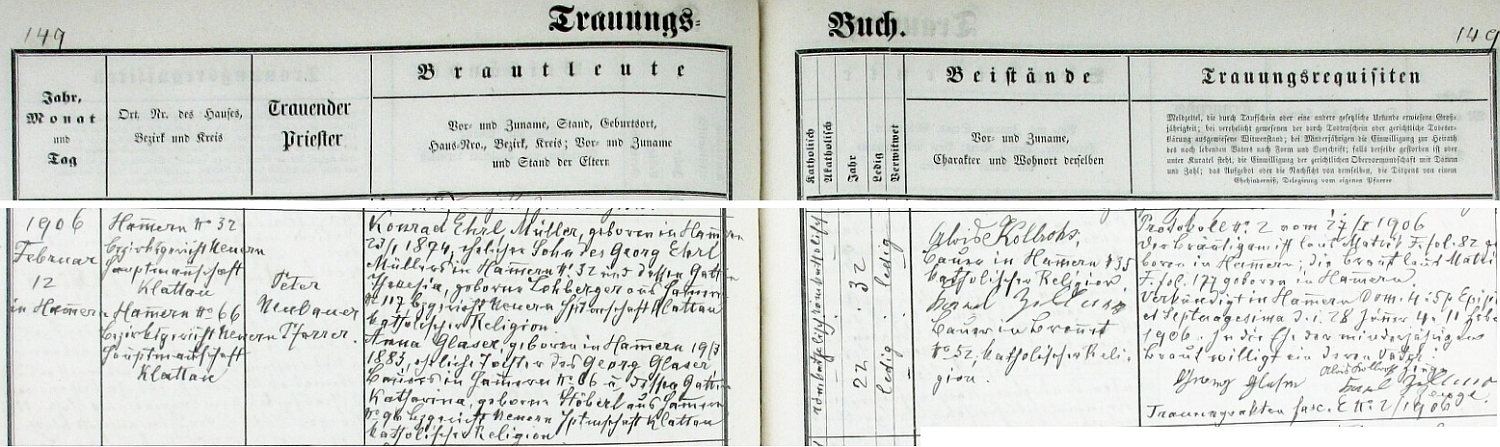 149
Trauungs-
Buch.
149
Jahr,
Monat
und
Tag
Ort, Nr. des Hauses,
Bezirk und Kreis
Trauender
Priester
Brautleute
Vor- und Zuname, Stand, Geburtsort,
Haus-Nro., Bezirk, Kreis; Vor- und Zuname
und Stand der Eltern
Katholisch
Akatholisch
Jahr
Ledig
Verwitwet
Beistände
Vor- und Zuname,
Charakter und Wohnort derselben
Trauungsrequisiten
Meldzettel, die durch Taufschein oder eine andere gesetzliche Urkunde erwiesene Groß-
jährigkeit; bei verehelicht gewesenen der durch Todtenschein oder gerichtliche Todeser-
klärung ausgewiesene Witwenstand; bei Minderjährigen die Einwilligung zur Heirath
des noch lebenden Vaters nach Form und Vorschrift; falls derselbe gestorben ist oder
unter Kuratel steht, die Einwilligung der gerichtlichen Obervormundschaft mit Datum
und Zahl; das Aufgebot oder die Nachsicht von demselben, die Dispens von einem
Ehehinderniß, Delegirung vom eigenen Pfarrer
1906
Februar
12
in Hammern
Hammern No 32
Bezirksgericht Neuern
Hauptmannschaft
Klattau
Hammern No 66
Bezirksgericht Neuern
Hauptmannschaft
Klattau
Peter
Neubauer
Pfarrer.
Konrad Ehrl, Müller, geboren in Hammern
1874, ehelicher Sohn des Georg Ehrl
Müllers in Hammern No 32 und dessen Gattin
Theresia, geborne Lohberger aus Hammern
No 117 Bzgericht Neuern Hptmschaft Klattau
katholischer Religion.
Anna Glaser, geboren in Hammern 19/3
1883, eheliche Tochter des Georg Glaser
Bauers in Hammern No 66 u. dessen Gattin
Katharina, geborne Stöberl aus Hammern
No 96 Bzgericht Neuern Hptmschaft Klattau
katholischer Religion
32
ledig
22
ledig
Alois Kollros
Bauer in Hammern No 35
katholischer Religion.
Bauer in Brünst
No 52, katholischer Reli-
gion.
Protokoll No 2 vom 27/I 1906
Der Bräutigam ist laut Matrik F. fol. 82 ge-
boren in Hammern; die Braut laut Matrik
F. fol. 177 geboren in Hammern.
Verkündigt in Hammern Dom. 4. 5 p. Epiph.
et Septuagesima d. i. 28 Jänner 4. u. 11 Feber
1906. In die Ehe der minderjährigen
Braut willigt ein deren Vater:
Georg Glaser
Alois Kollros Zeuge
Zeuge.
Trauungsakten fasc. E No 2/1906